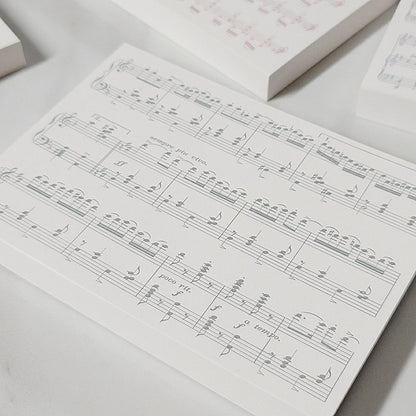 sempre più vivo.
ff
poco rit.
f
f
a tempo.